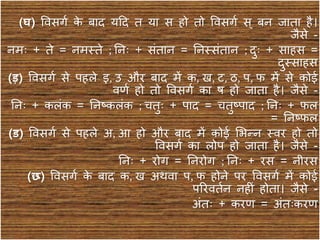 (घ) विसर्ग के बाद यदि त या स हो तो विसर्ग स् बन जाता है।
जैसे -
नमः + ते = नमस्ते ; निः + संतान = निस्संतान ; दुः + साहस =
दुस्साहस
(ङ) विसर्ग से पहले इ, उ और बाद में क, ख, ट, ठ, प, फ में से कोई
वर्ण हो तो विसर्ग का ष हो जाता है। जैसे -
निः + कलंक = निष्कलंक ; चतुः + पाद = चतुष्पाद ; निः + फल
= निष्फल
(ड) विसर्ग से पहले अ, आ हो और बाद में कोई भिन्न स्वर हो तो
विसर्ग का लोप हो जाता है। जैसे -
निः + रोग = निरोग ; निः + रस = नीरस
(छ) विसर्ग के बाद क, ख अथवा प, फ होने पर विसर्ग में कोई
परिवर्तन नहीं होता। जैसे -
अंतः + करण = अंतःकरण